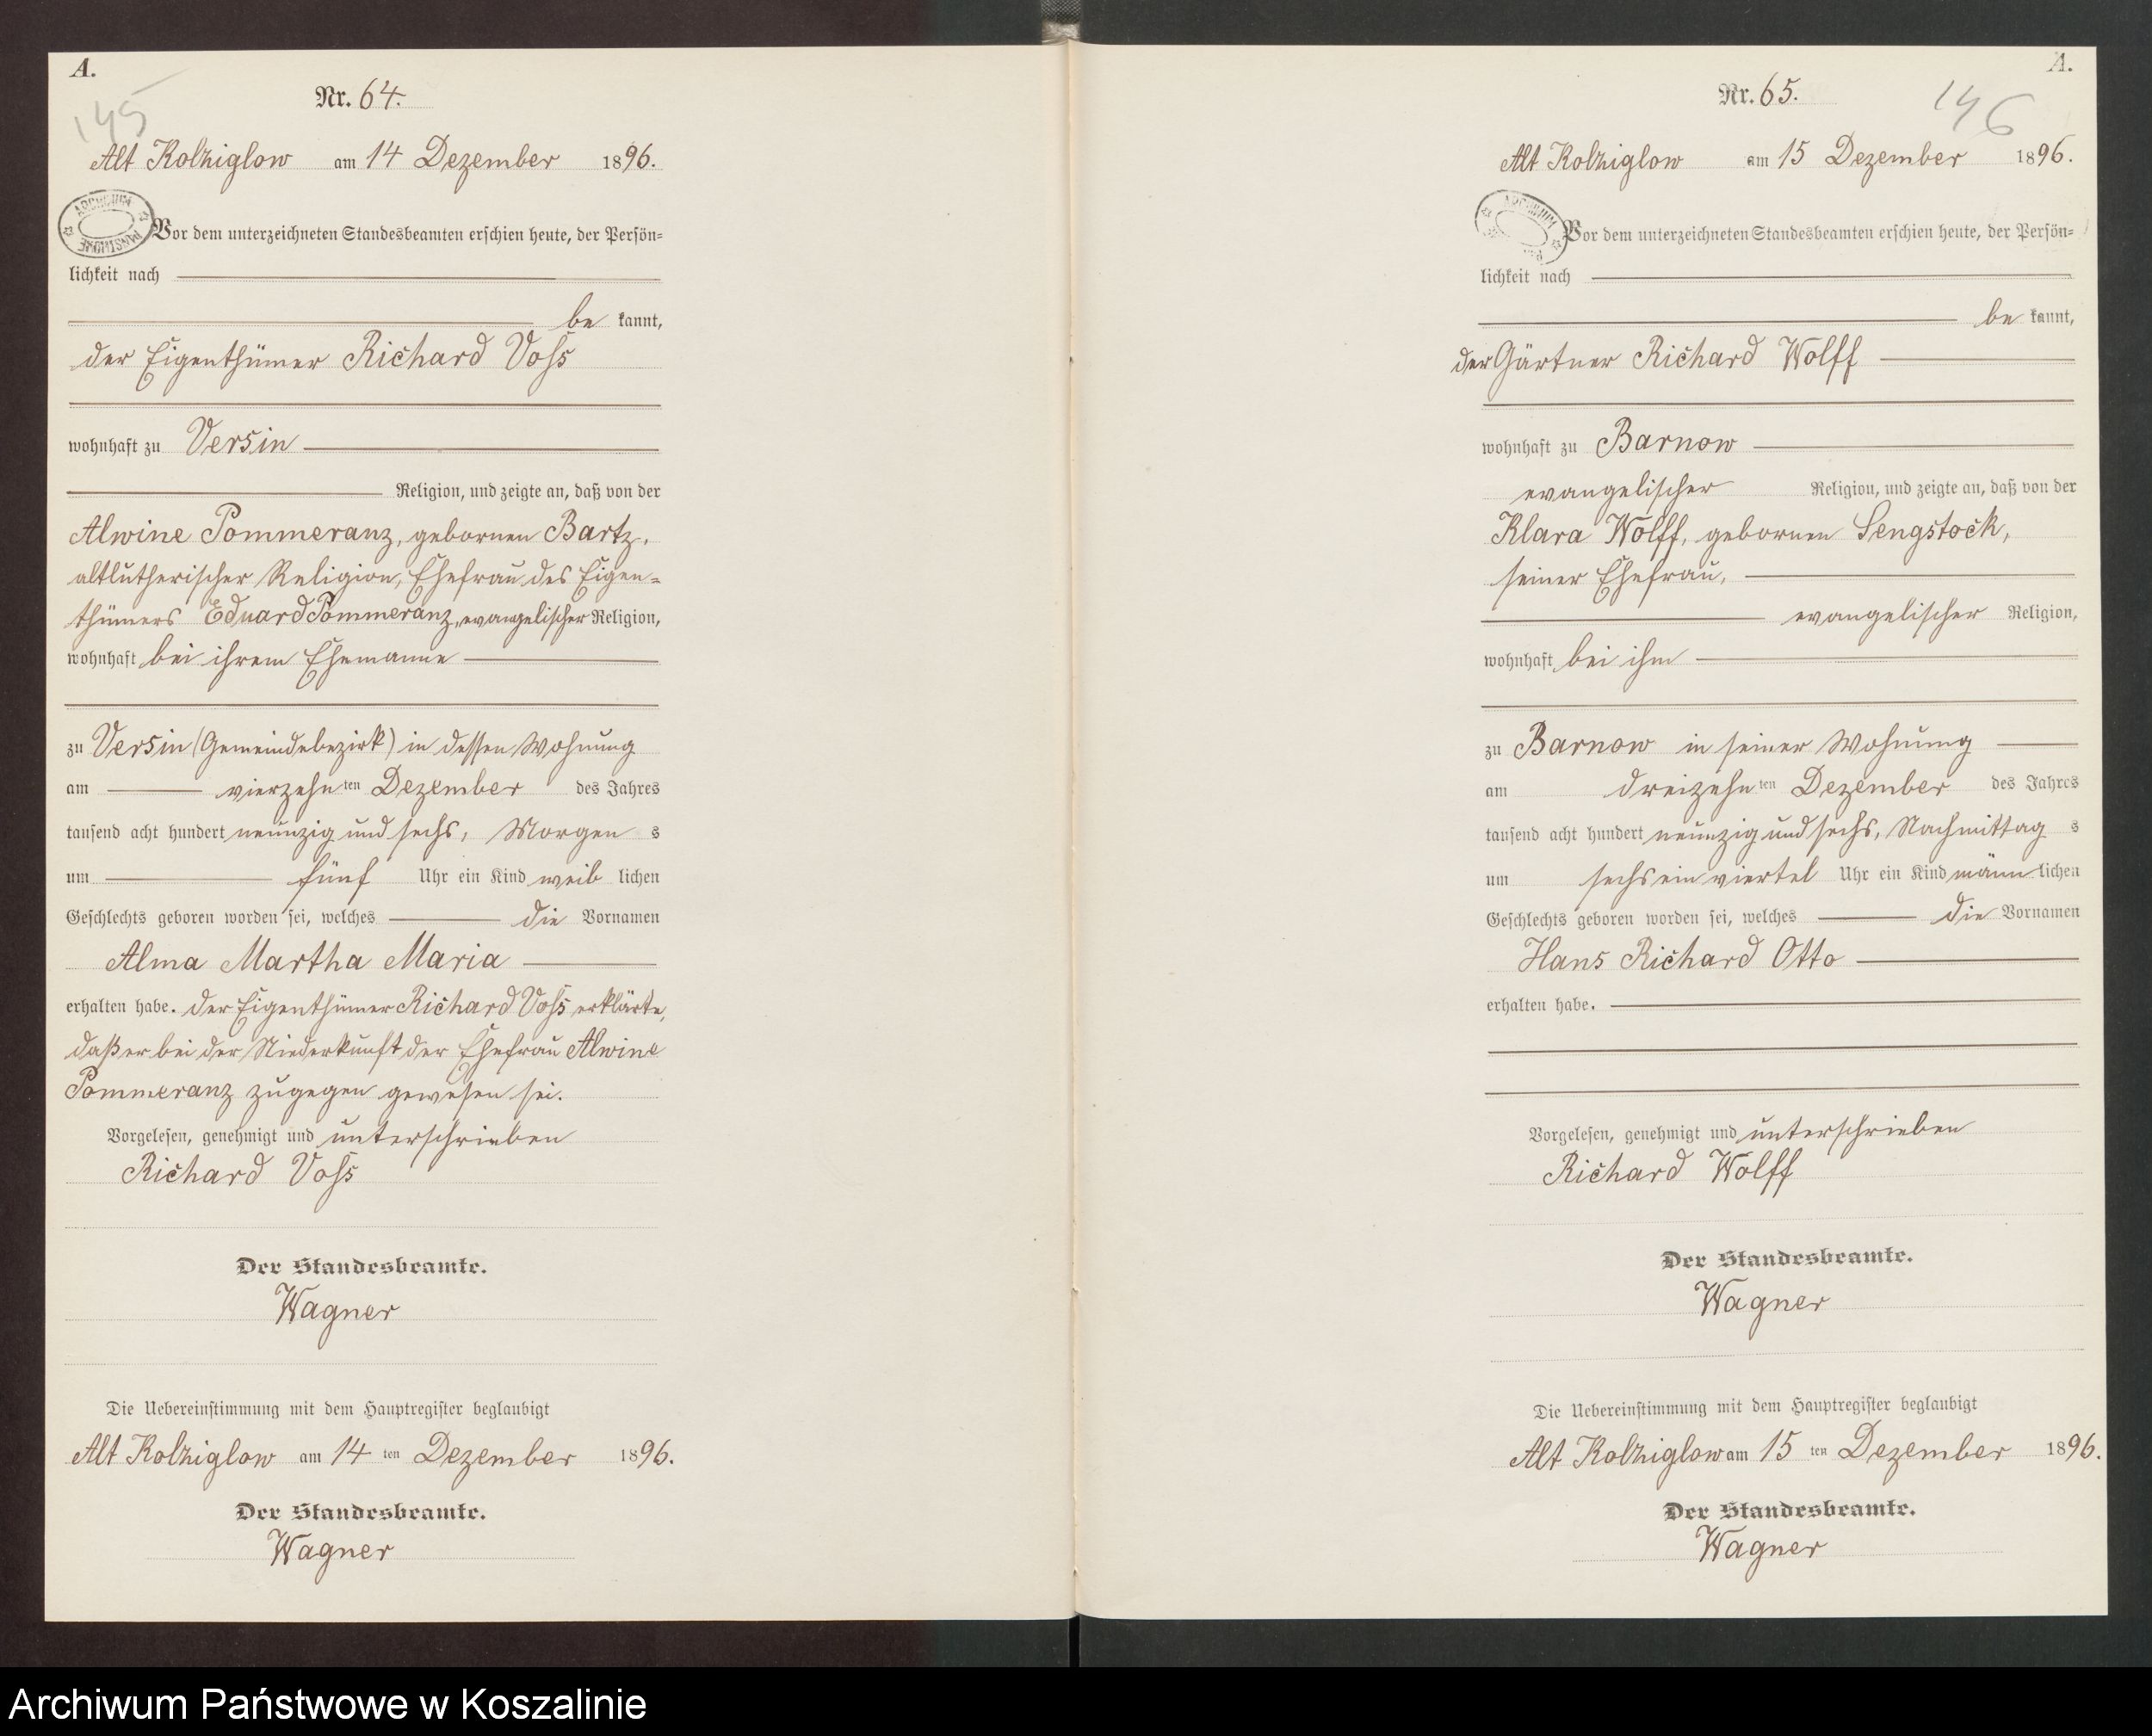 A.
145
Nr. 64.
Alt Kolziglow am 14 Dezember 1896.
ARCHIWUM PAŃSTWOWE
Vor dem unterzeichneten Standesbeamten erschien heute, der Persön=
lichkeit nach
be kannt,
der Eigenthümer Richard Voss
wohnhaft zu Versin
Religion, und zeigte an, daß von der
Alwine Pommeranz, gebornen Bartz,
altlutherischer Religion, Ehefrau des Eigen=
thümers Eduard Pommeranz, evangelischer Religion,
wohnhaft bei ihrem Ehemanne
zu Versin (Gemeindebezirk) in dessen Wohnung
am vierzehn ten Dezember des Jahres
tausend acht hundert neunzig und sechs, Morgen s
um fünf Uhr ein Kind weib lichen
Geschlechts geboren worden sei, welches die Vornamen
Alma Martha Maria
erhalten habe. Der Eigenthümer Richard Voss erklärte,
daß er bei der Niederkunft der Ehefrau Alwine
Pommeranz zugegen gewesen sei.
Vorgelesen, genehmigt und unterschrieben
Richard Voss
Der Standesbeamte.
Wagner
Die Uebereinstimmung mit dem Hauptregister beglaubigt
Alt Kolziglow am 14 ten Dezember 1896.
Der Standesbeamte.
Wagner
A.
146
Nr. 65.
Alt Kolziglow am 15 Dezember 1896.
ARCHIWUM
Vor dem unterzeichneten Standesbeamten erschien heute, der Persön=
lichkeit nach
be kannt,
der Gärtner Richard Wolff
wohnhaft zu Barnow
evangelischer Religion, und zeigte an, daß von der
Klara Wolff, gebornen Sengstock,
seiner Ehefrau,
evangelischer Religion,
wohnhaft bei ihm
zu Barnow in seiner Wohnung
am dreizehn ten Dezember des Jahres
tausend acht hundert neunzig und sechs, Nachmittag s
um sechs ein viertel Uhr ein Kind männ lichen
Geschlechts geboren worden sei, welches die Vornamen
Hans Richard Otto
erhalten habe.
Vorgelesen, genehmigt und unterschrieben
Richard Wolff
Der Standesbeamte.
Wagner
Die Uebereinstimmung mit dem Hauptregister beglaubigt
Alt Kolziglow am 15 ten Dezember 1896.
Der Standesbeamte.
Wagner
Archiwum Państwowe w Koszalinie